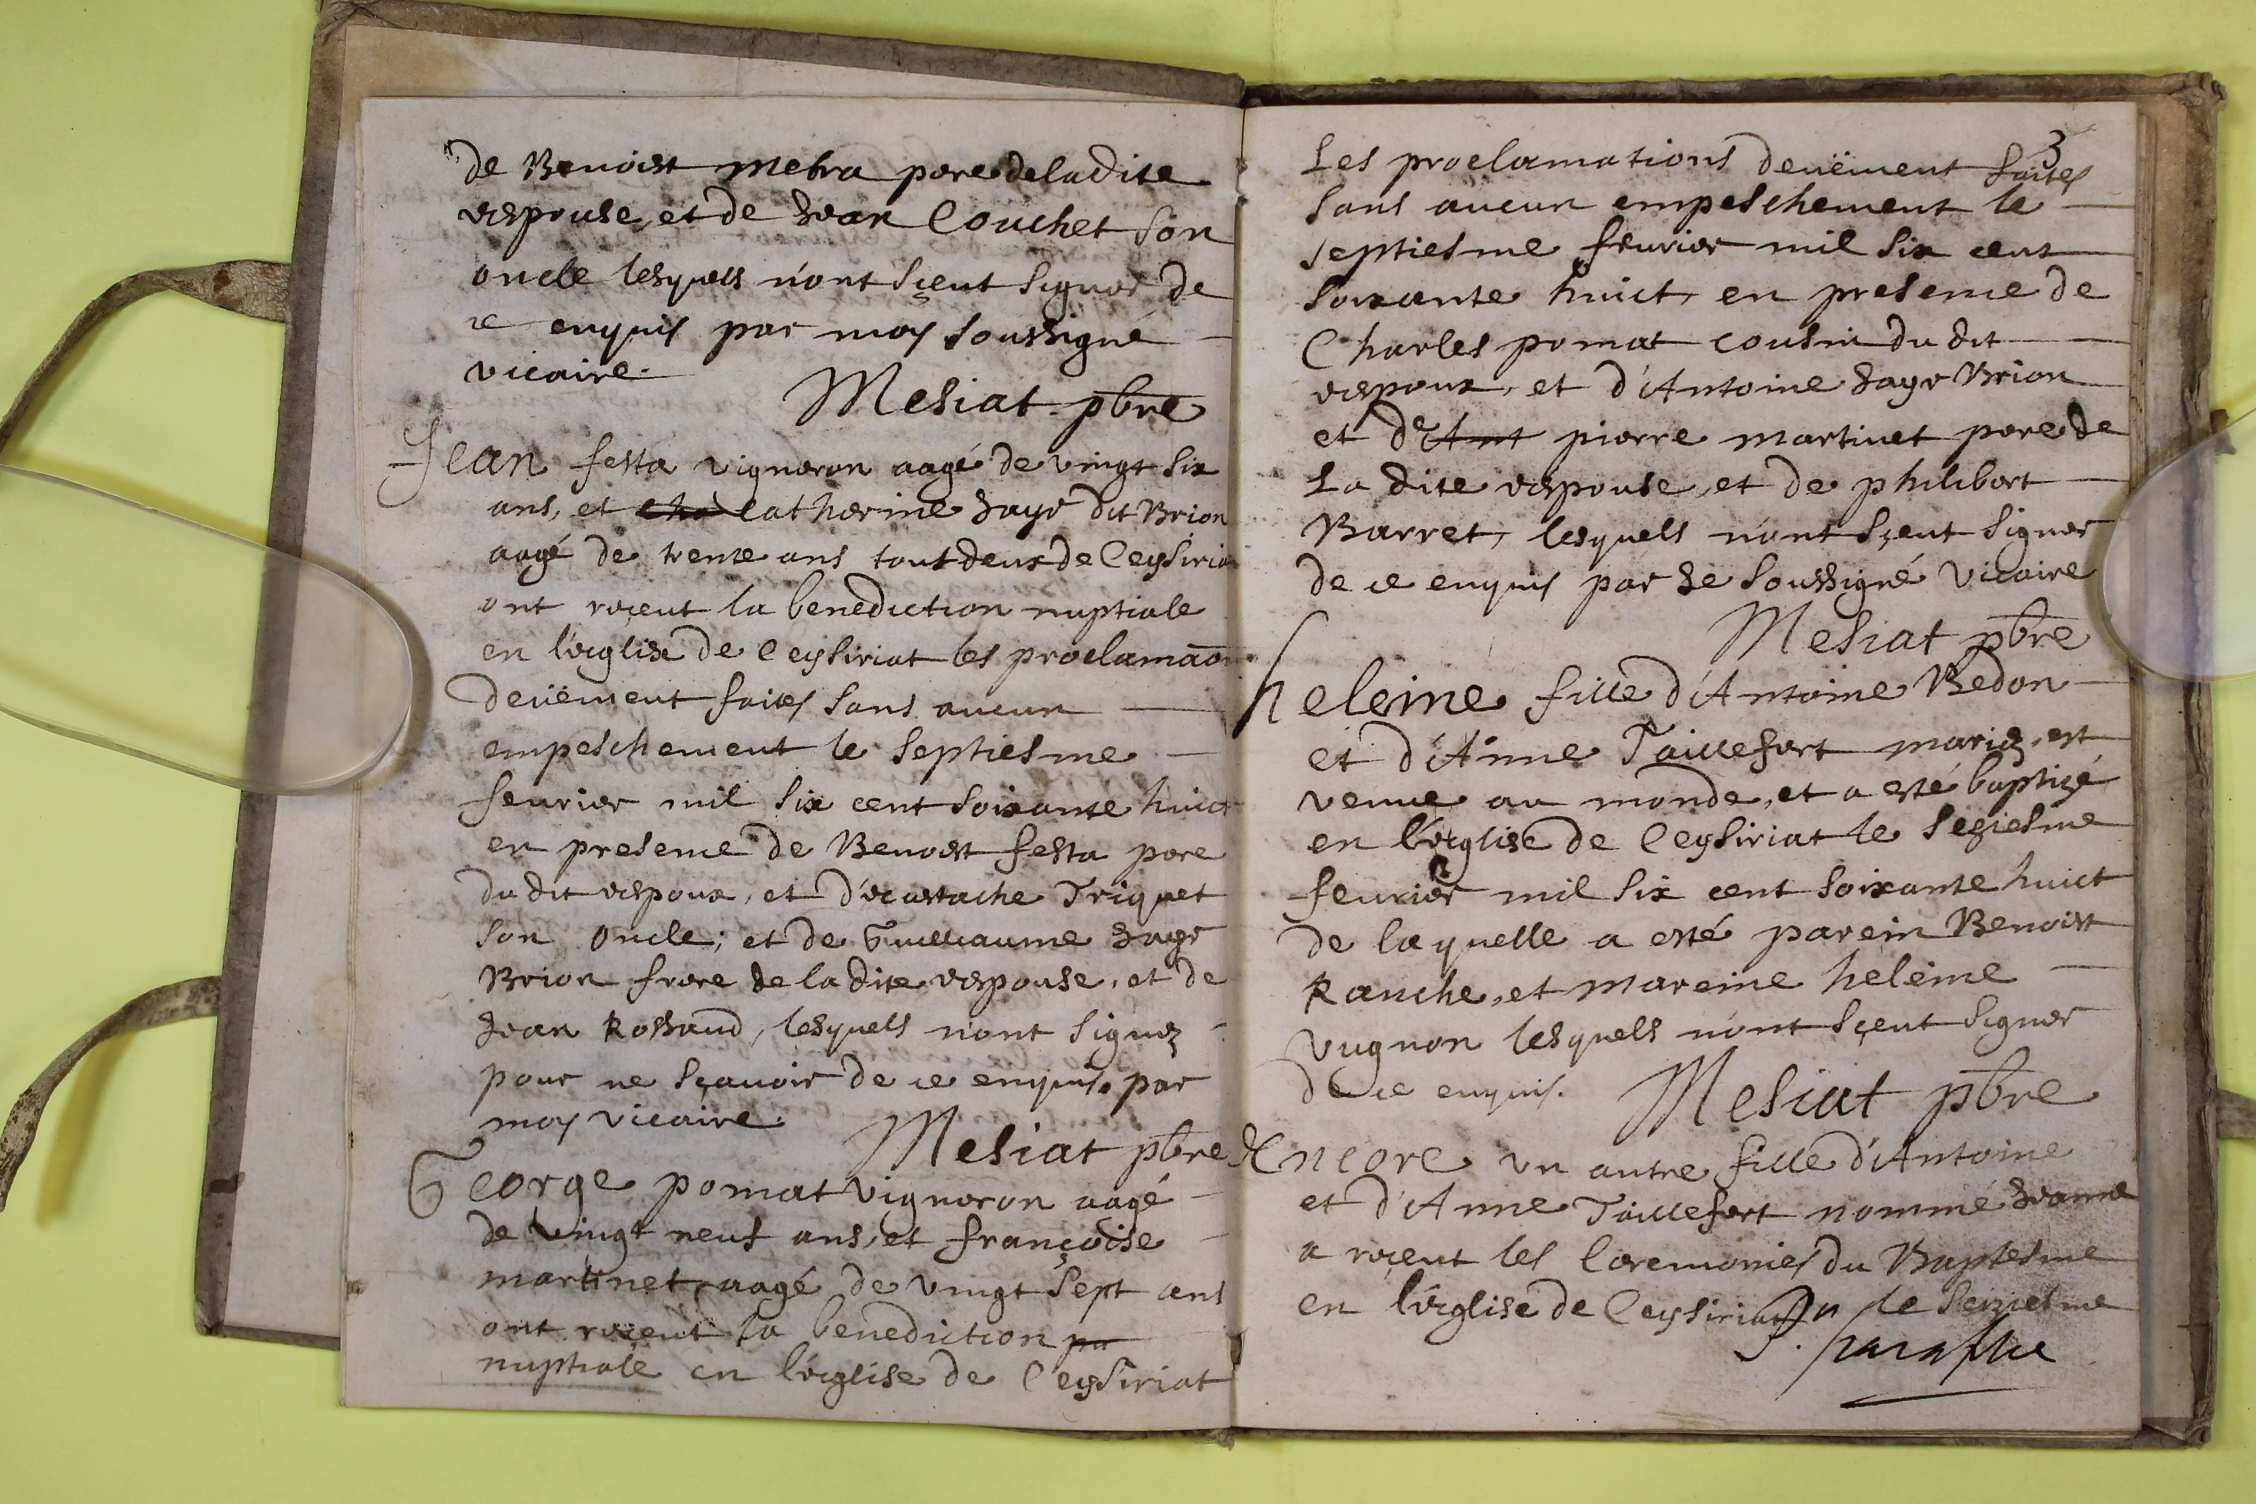 de Benoist metra pere de la dite
espouse, et de Jean Couchet son
oncle lesquels n'ont sçeut signer de
ce enquis par moy soussigné
vicaire.
Mesiat pbre
Jean festa vigneron aagé de vingt six
ans, et cha catherine Jaye dit Brion
aagé de trente ans tout deux de Ceysiria
ont reçeut la benediction nuptiale
en l'eglise de Ceysiriat les proclamaõn
deüement faites sans aucun
empeschement le septiesme
feurier mil six cent soixante huict
en presence de Benoist festa pere
du dit espoux, et d'eustache Triquet
son oncle; et de Guilliaume Jaye
Brion frere de la dite espouse, et de
Jean Rossaud, lesquels n'ont signez
pour ne sçauoir de ce enquis par
moy vicaire.
Mesiat pbre
George pomat vigneron aagé
de vingt neuf ans, et françoise
martinet, aagé de vingt sept ans
ont reçeut la benediction nu
nuptiale en l'eglise de Ceysiriat
3
Les proclamations deüement faites
sans aucun empeschement le
septiesme feurier mil six cent
soixante huict, en presence de
Charles pomat cousin du dit
espoux, et d'Antoine Jaye Brion
et de Ant pierre martinet pere de
La dite espouse, et de philibert
Barret, lesquels n'ont sçeut signer
de ce enquis par Je soussigné vicaire
Mesiat pbre
heleine fille d'Antoine Bedon
et d'Anne Taillefert mariez, est
venue au monde, et a esté baptizé
en l'eglise de Ceysiriat le seziesme
feurier mil six cent soixante huict
de laquelle a esté parein Benoist
Ranche, et mareine heleine
vugnon lesquels n'ont sçeut signer
de ce enquis.
Mesiat pbre
Encore vn autre fille d'Antoine
et d'Anne Taillefert nommé Jeanne
a reçeut les Ceremonies du Baptesme
en l'eglise de Ceysiriat le seiziesme
paraphe